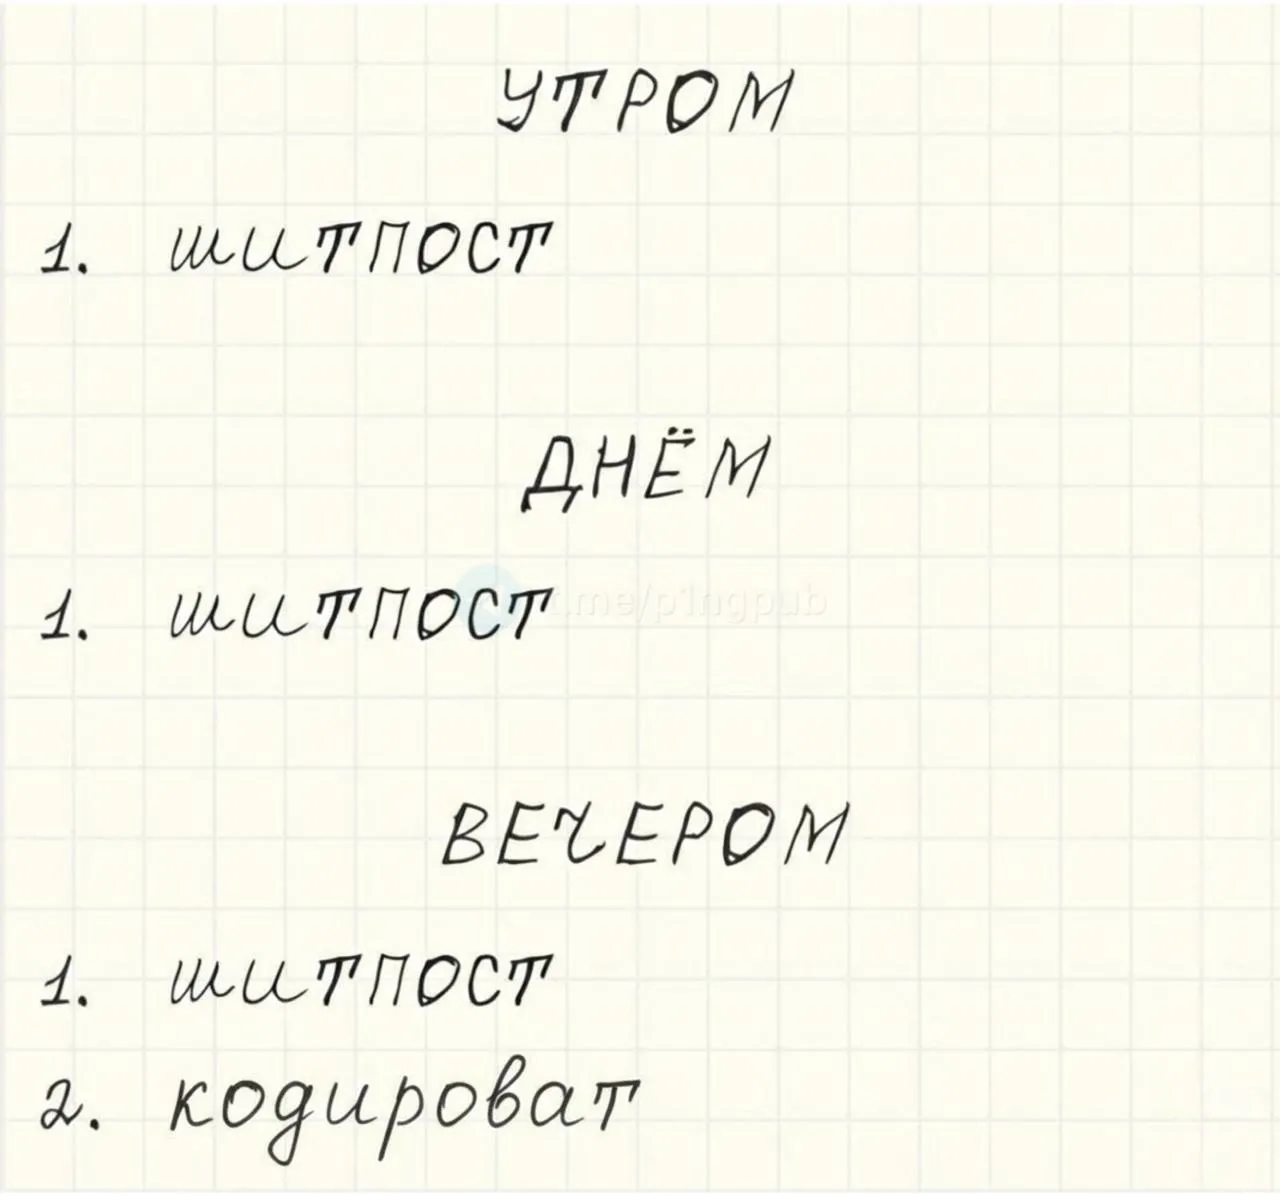 УТРОМ
1. ШИТПОСТ
ДНЁМ
1. ШИТПОСТ
t.me/p1ngpub
ВЕЧЕРОМ
1. ШИТПОСТ
2. кодироват